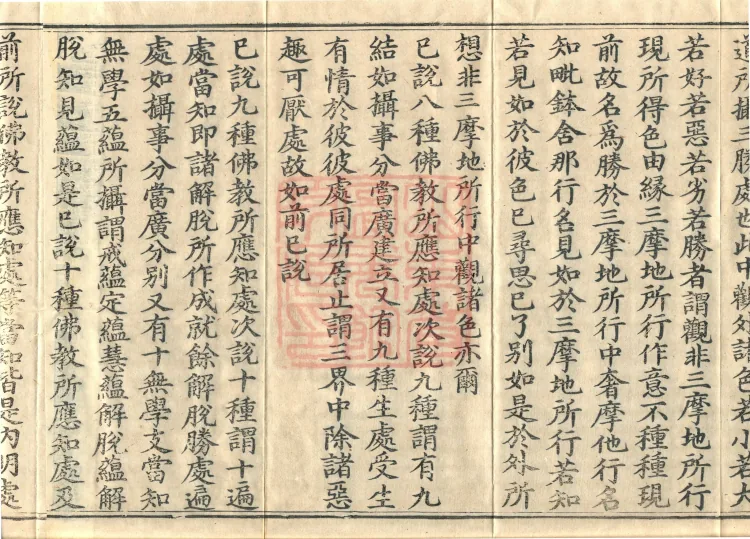 道所攝三勝處也此中觀外諸色若小若大
若好若惡若劣若勝者謂觀非三摩地所行
現所得色由緣三摩地所行作意不種種現
前故名爲勝於三摩地所行中奢摩他行名
知毗鉢舍那行名見如於三摩地所行若知
若見如於彼色已尋思已了別如是於外所
想非三摩地所行中觀諸色亦爾
已說八種佛教所應知處次說九種謂有九
結如攝事分當廣建立又有九種生處受生
有情於彼彼處同所居止謂三界中除諸惡
趣可厭處故如前已說
已說九種佛教所應知處次說十種謂十遍
處當知即諸解脫所作成就餘解脫勝處遍
處如攝事分當廣分別又有十無學支當知
無學五蘊所攝謂戒蘊定蘊慧蘊解脫蘊解
脫知見蘊如是已說十種佛教所應知處及
前所說佛教所應知處等當知皆是內明處